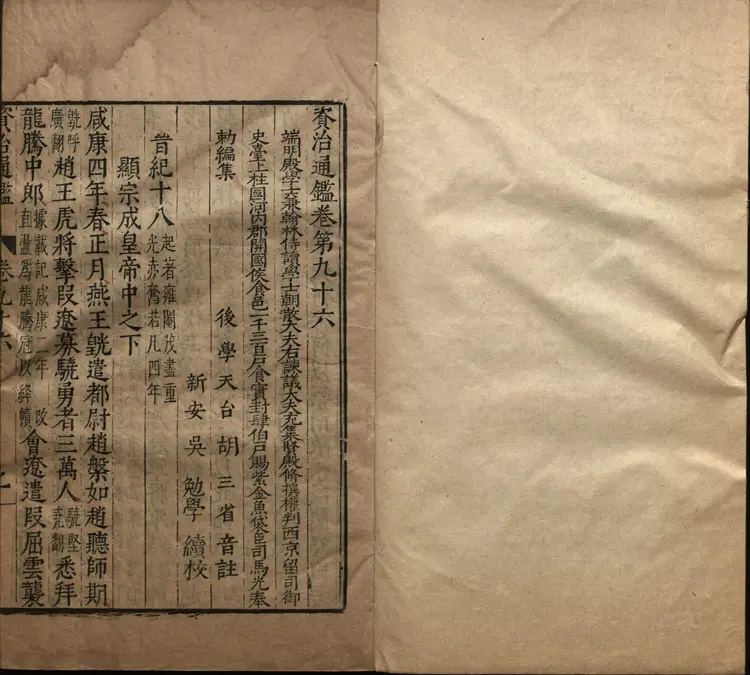 資治通鑑卷第九十六
端明殿學士兼翰林侍讀學士朝散大夫右諫議大夫充集賢殿脩撰權判西京留司御
史臺上柱國河內郡開國侯食邑一千三百戶食實封肆伯戶賜紫金魚袋臣司馬光奉
勅編集
後學天台胡三省音註
新安吳勉學續校
晉紀十八起著雍閹茂盡重
光赤奮若凡四年
顯宗成皇帝中之下
咸康四年春正月燕王皝遣都尉趙槃如趙聽師期
皝呼
廣翻
趙王虎將擊段遼募驍勇者三萬人
驍堅
堯翻
悉拜
龍騰中郎
據載記咸康二年改
直盪爲龍騰冠以絳幘
會遼遣段屈雲襲
資治通鑑
卷九十六